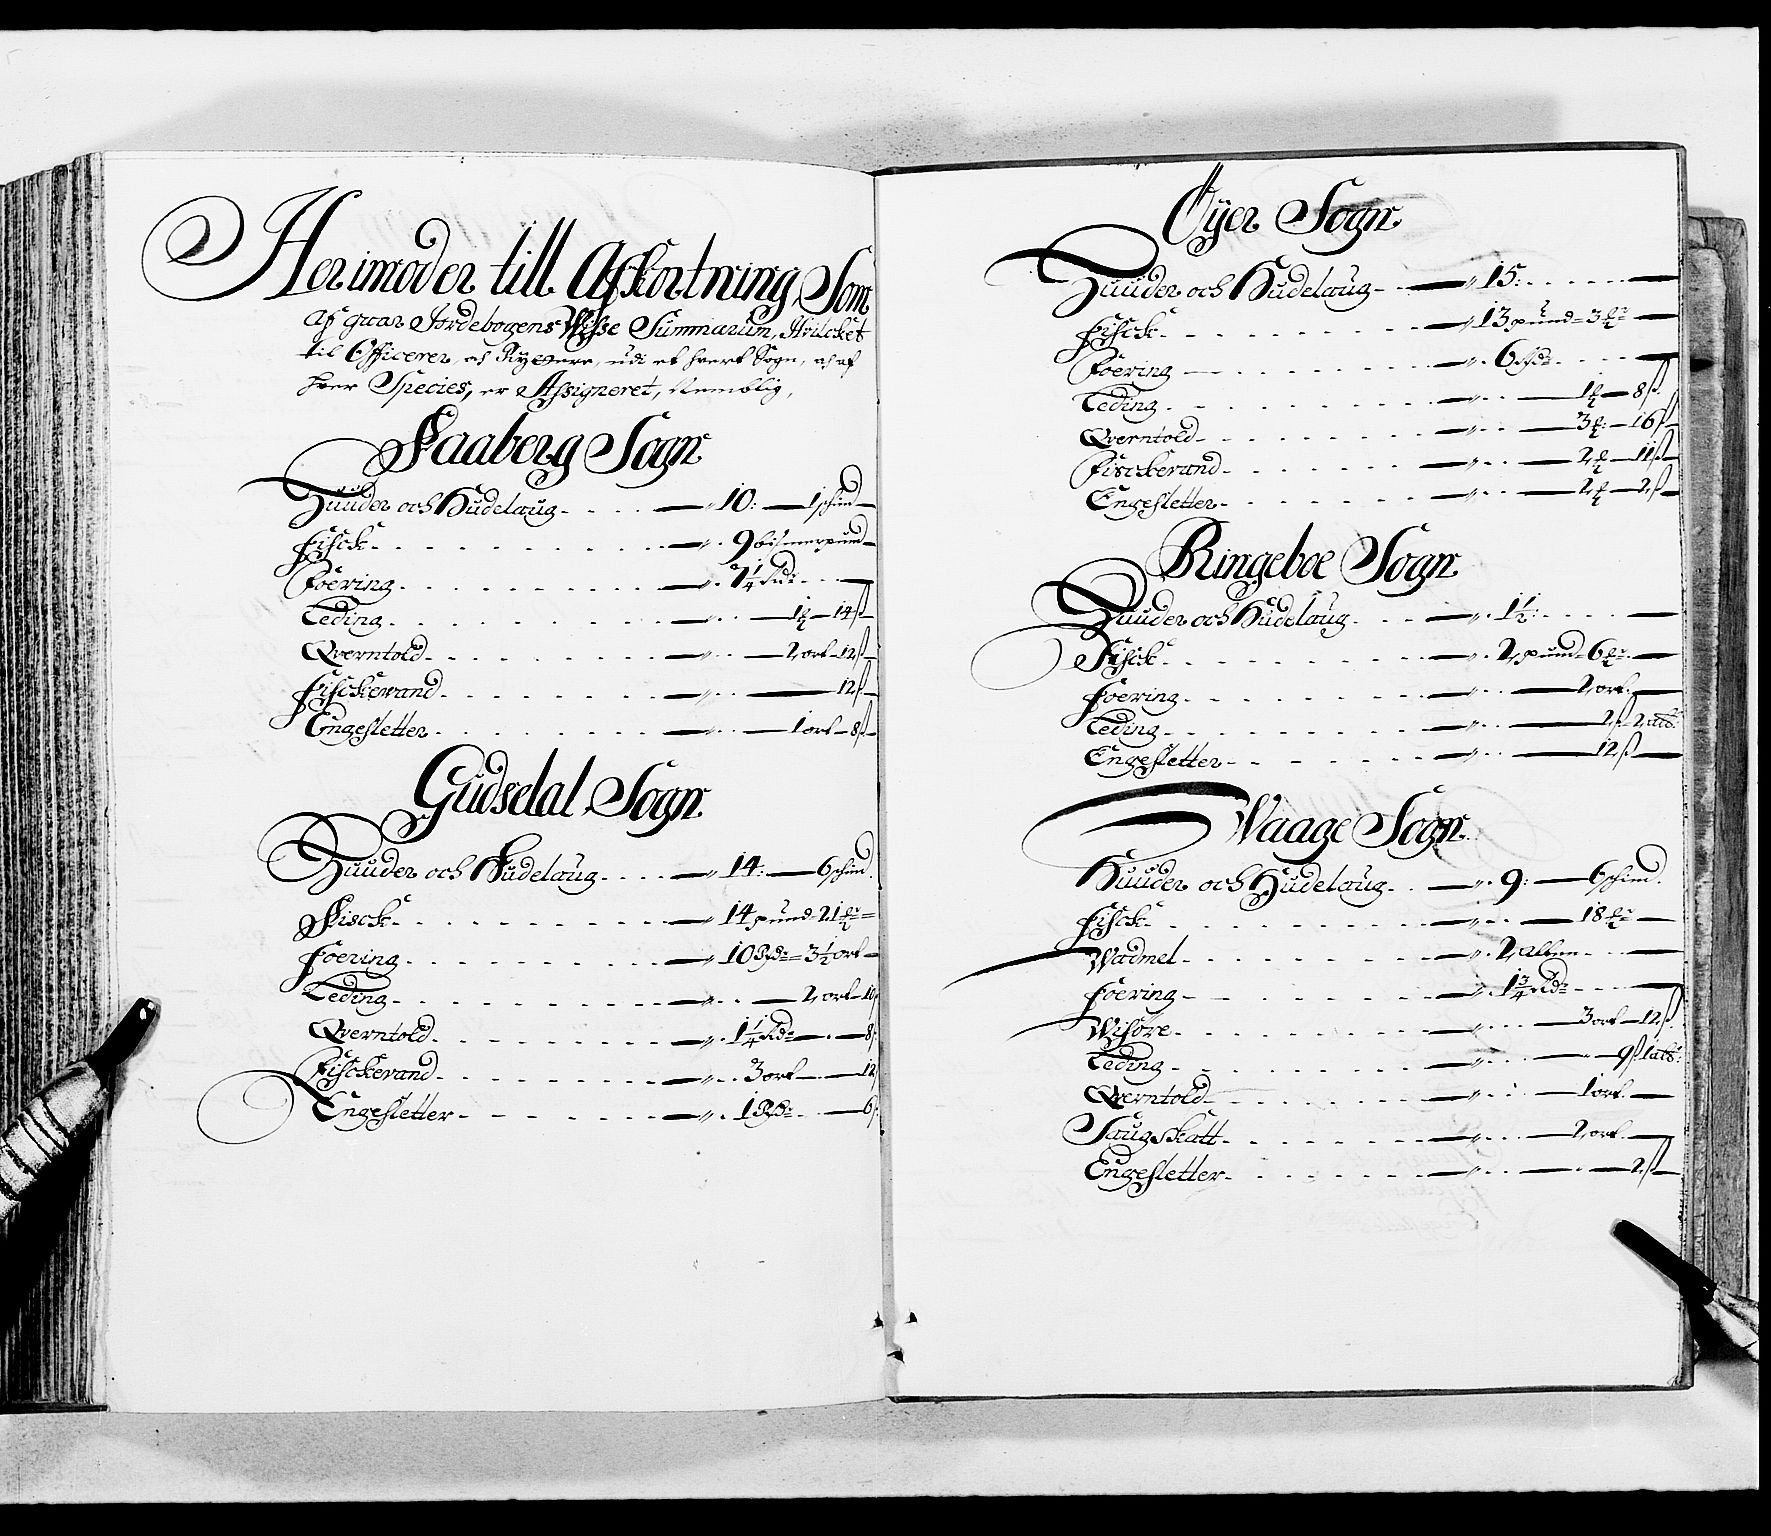 Herimoder till Afkortning Som
af guar Jordebogens Wisse Summarum, Hvilcket
til Officerer, och Ryttere, udi et hvert Sogn, och af
hver Species, er Assigneret, Nemblig,
Faaberg Sogn
Huuder och Hudelaug - 10: 1 schind
Fisck - 9 bismerpund
Foering - 7 1/4 Rdr
Leding - 1 ß 14 ß
Qverntold - 2 ort 12 ß
Fisckevand - 12 ß
Engesletter - 1 ort 8 ß
Gudsdal Sogn
Huuder och Hudelaug - 14: 6 schind
Fisck - 14 pund
Foering - 10 Rdr 3 1/2 ort
Leding - 2 ort 10
Qverntold - 1 1/4 Rdr 8
Fisckevand - 3 ort 12
Engesletter - 1 Rdr 6
Öyer Sogn
Huuder och Hudelaug - 15:
Fisck - 13 pund
Foering - 6 Rdr
Leding - 8 ß
Qverntold - 16 ß
Fisckevand - 11 ß
Engesletter - 2 ß
Ringeboe Sogn
Huuder och Hudelaug - 1 1/2:
Fisck - 2 pund
Foering - 2 ort
Leding - 2 ß 2 alb
Engesletter - 12 ß
Waage Sogn
Huuder och Hudelaug - 9: 6 schind
Fisck - 18
Wadmel - 2 Allen
Foering - 1 3/4 Rdr
Wisöre - 3 ort 12 ß
Leding - 9 ß 1 alb
Qverntold - 1 ort
Saugskatt - 2 ort
Engesletter - 2 ß